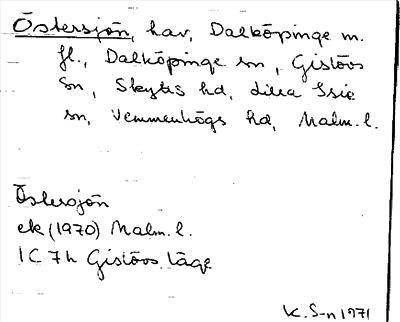 Östersjön, hav, Dalköpinge m.
fl., Dalköpinge sn, Gislövs
sn, Skytts hd, Lilla Isie
sn, Vemmenhögs hd, Malm. l.
Östersjön
ek (1970) Malm. l.
1C 7h Gislövs läge
K. S-n 1971